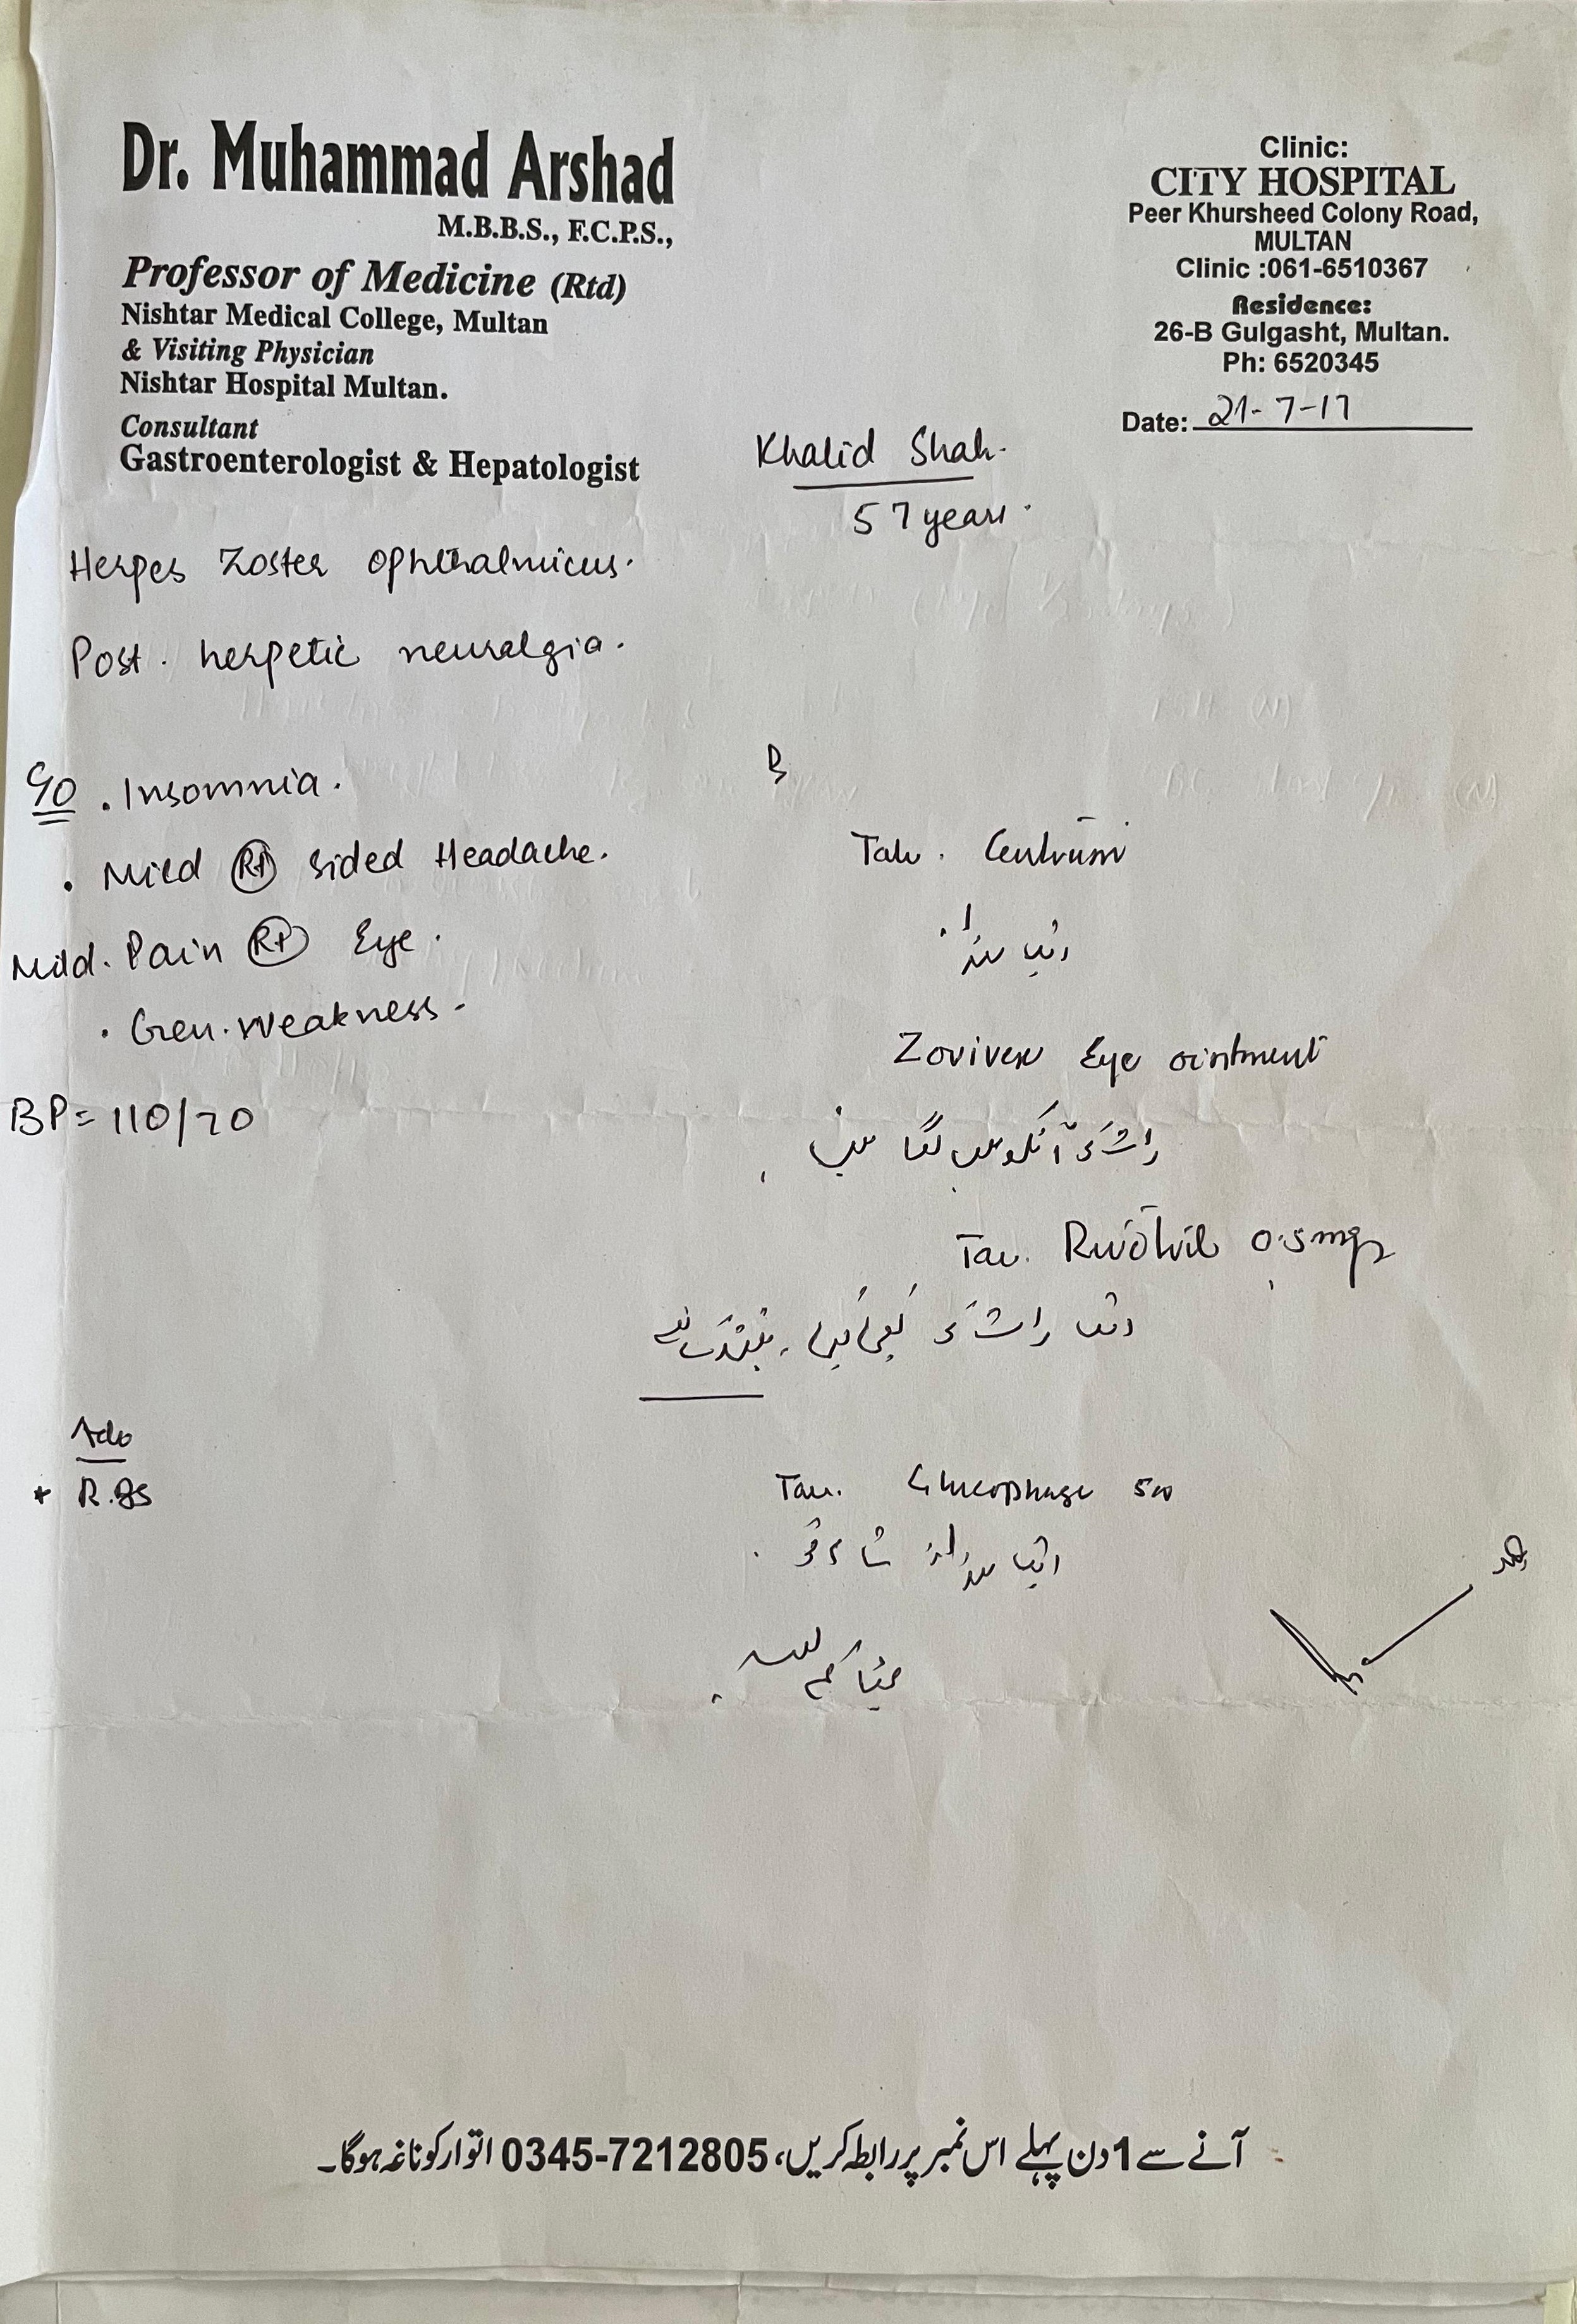 Dr. Muhammad Arshad
M.B.B.S., F.C.P.S.,
Professor of Medicine (Rtd)
Nishtar Medical College, Multan
& Visiting Physician
Nishtar Hospital Multan.
Consultant
Gastroenterologist & Hepatologist
Clinic:
CITY HOSPITAL
Peer Khursheed Colony Road,
MULTAN
Clinic :061-6510367
Residence:
26-B Gulgasht, Multan.
Ph: 6520345
Date: 21-7-17
Khalid Shah.
57 years.
Herpes Zoster Ophthalmicus.
Post. herpetic neuralgia.
C/O . Insomnia.
. Mild Rt sided Headache.
Mild. Pain Rt Eye.
. Gen. Weakness.
BP= 110/70
Adv
* R.BS
Tab. Centrum
ایک روزانہ
Zovirex Eye ointment
رات کو آنکھ میں لگا لیں
Tab. Rivotril 0.5mg
ایک رات کو کبھی کبھی
Tab. Glucophage 500
ایک روزانہ شام کو
میٹھا کم
آنے سے 1 دن پہلے اس نمبر پر رابطہ کریں، 0345-7212805 اتوار کو ناغہ ہوگا۔